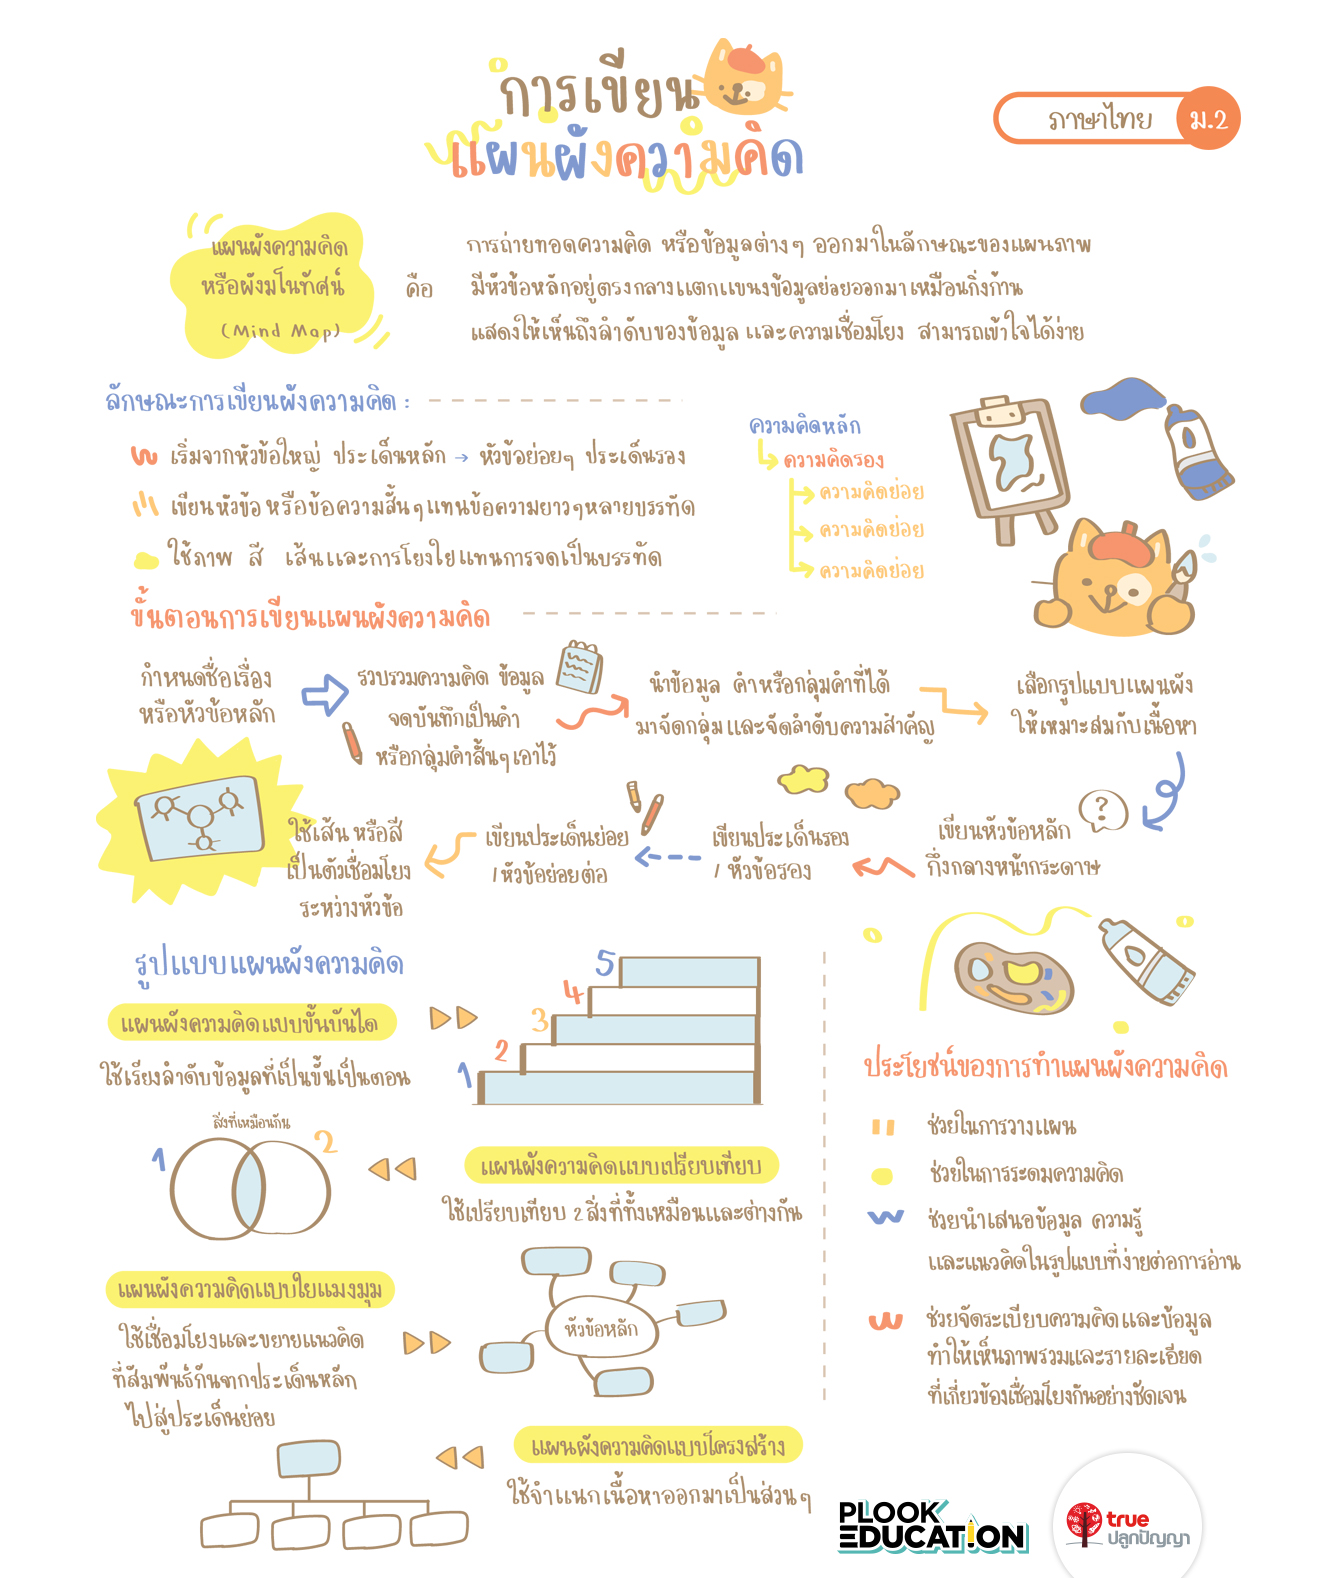 การเขียน
แผนผังความคิด
ภาษาไทย ม.2
แผนผังความคิด
หรือผังมโนทัศน์
(Mind Map)
คือ
การถ่ายทอดความคิด หรือข้อมูลต่างๆ ออกมาในลักษณะของแผนภาพ
มีหัวข้อหลักอยู่ตรงกลางแตกแขนงข้อมูลย่อยออกมาเหมือนกิ่งก้าน
แสดงให้เห็นถึงลำดับของข้อมูล และความเชื่อมโยง สามารถเข้าใจได้ง่าย
ลักษณะการเขียนผังความคิด :
เริ่มจากหัวข้อใหญ่ ประเด็นหลัก → หัวข้อย่อยๆ ประเด็นรอง
เขียนหัวข้อ หรือข้อความสั้นๆแทนข้อความยาวๆหลายบรรทัด
ใช้ภาพ สี เส้นและการโยงใยแทนการจดเป็นบรรทัด
ความคิดหลัก
ความคิดรอง
ความคิดย่อย
ความคิดย่อย
ความคิดย่อย
ขั้นตอนการเขียนแผนผังความคิด
กำหนดชื่อเรื่อง
หรือหัวข้อหลัก
รวบรวมความคิด ข้อมูล
จดบันทึกเป็นคำ
หรือกลุ่มคำสั้นๆเอาไว้
นำข้อมูล คำหรือกลุ่มคำที่ได้
มาจัดกลุ่มและจัดลำดับความสำคัญ
เลือกรูปแบบแผนผัง
ให้เหมาะสมกับเนื้อหา
?
เขียนหัวข้อหลัก
กึ่งกลางหน้ากระดาษ
เขียนประเด็นรอง
/ หัวข้อรอง
เขียนประเด็นย่อย
/หัวข้อย่อยต่อ
ใช้เส้น หรือสี
เป็นตัวเชื่อมโยง
ระหว่างหัวข้อ
รูปแบบแผนผังความคิด
แผนผังความคิดแบบขั้นบันได
ใช้เรียงลำดับข้อมูลที่เป็นขั้นเป็นตอน
5
4
3
2
1
สิ่งที่เหมือนกัน
1
2
แผนผังความคิดแบบเปรียบเทียบ
ใช้เปรียบเทียบ 2 สิ่งที่ทั้งเหมือนและต่างกัน
แผนผังความคิดแบบใยแมงมุม
ใช้เชื่อมโยงและขยายแนวคิด
ที่สัมพันธ์กันจากประเด็นหลัก
ไปสู่ประเด็นย่อย
หัวข้อหลัก
แผนผังความคิดแบบโครงสร้าง
ใช้จำแนกเนื้อหาออกมาเป็นส่วนๆ
ประโยชน์ของการทำแผนผังความคิด
ช่วยในการวางแผน
ช่วยในการระดมความคิด
ช่วยนำเสนอข้อมูล ความรู้
และแนวคิดในรูปแบบที่ง่ายต่อการอ่าน
ช่วยจัดระเบียบความคิดและข้อมูล
ทำให้เห็นภาพรวมและรายละเอียด
ที่เกี่ยวข้องเชื่อมโยงกันอย่างชัดเจน
PLOOK
EDUCATION
true
ปลูกปัญญา